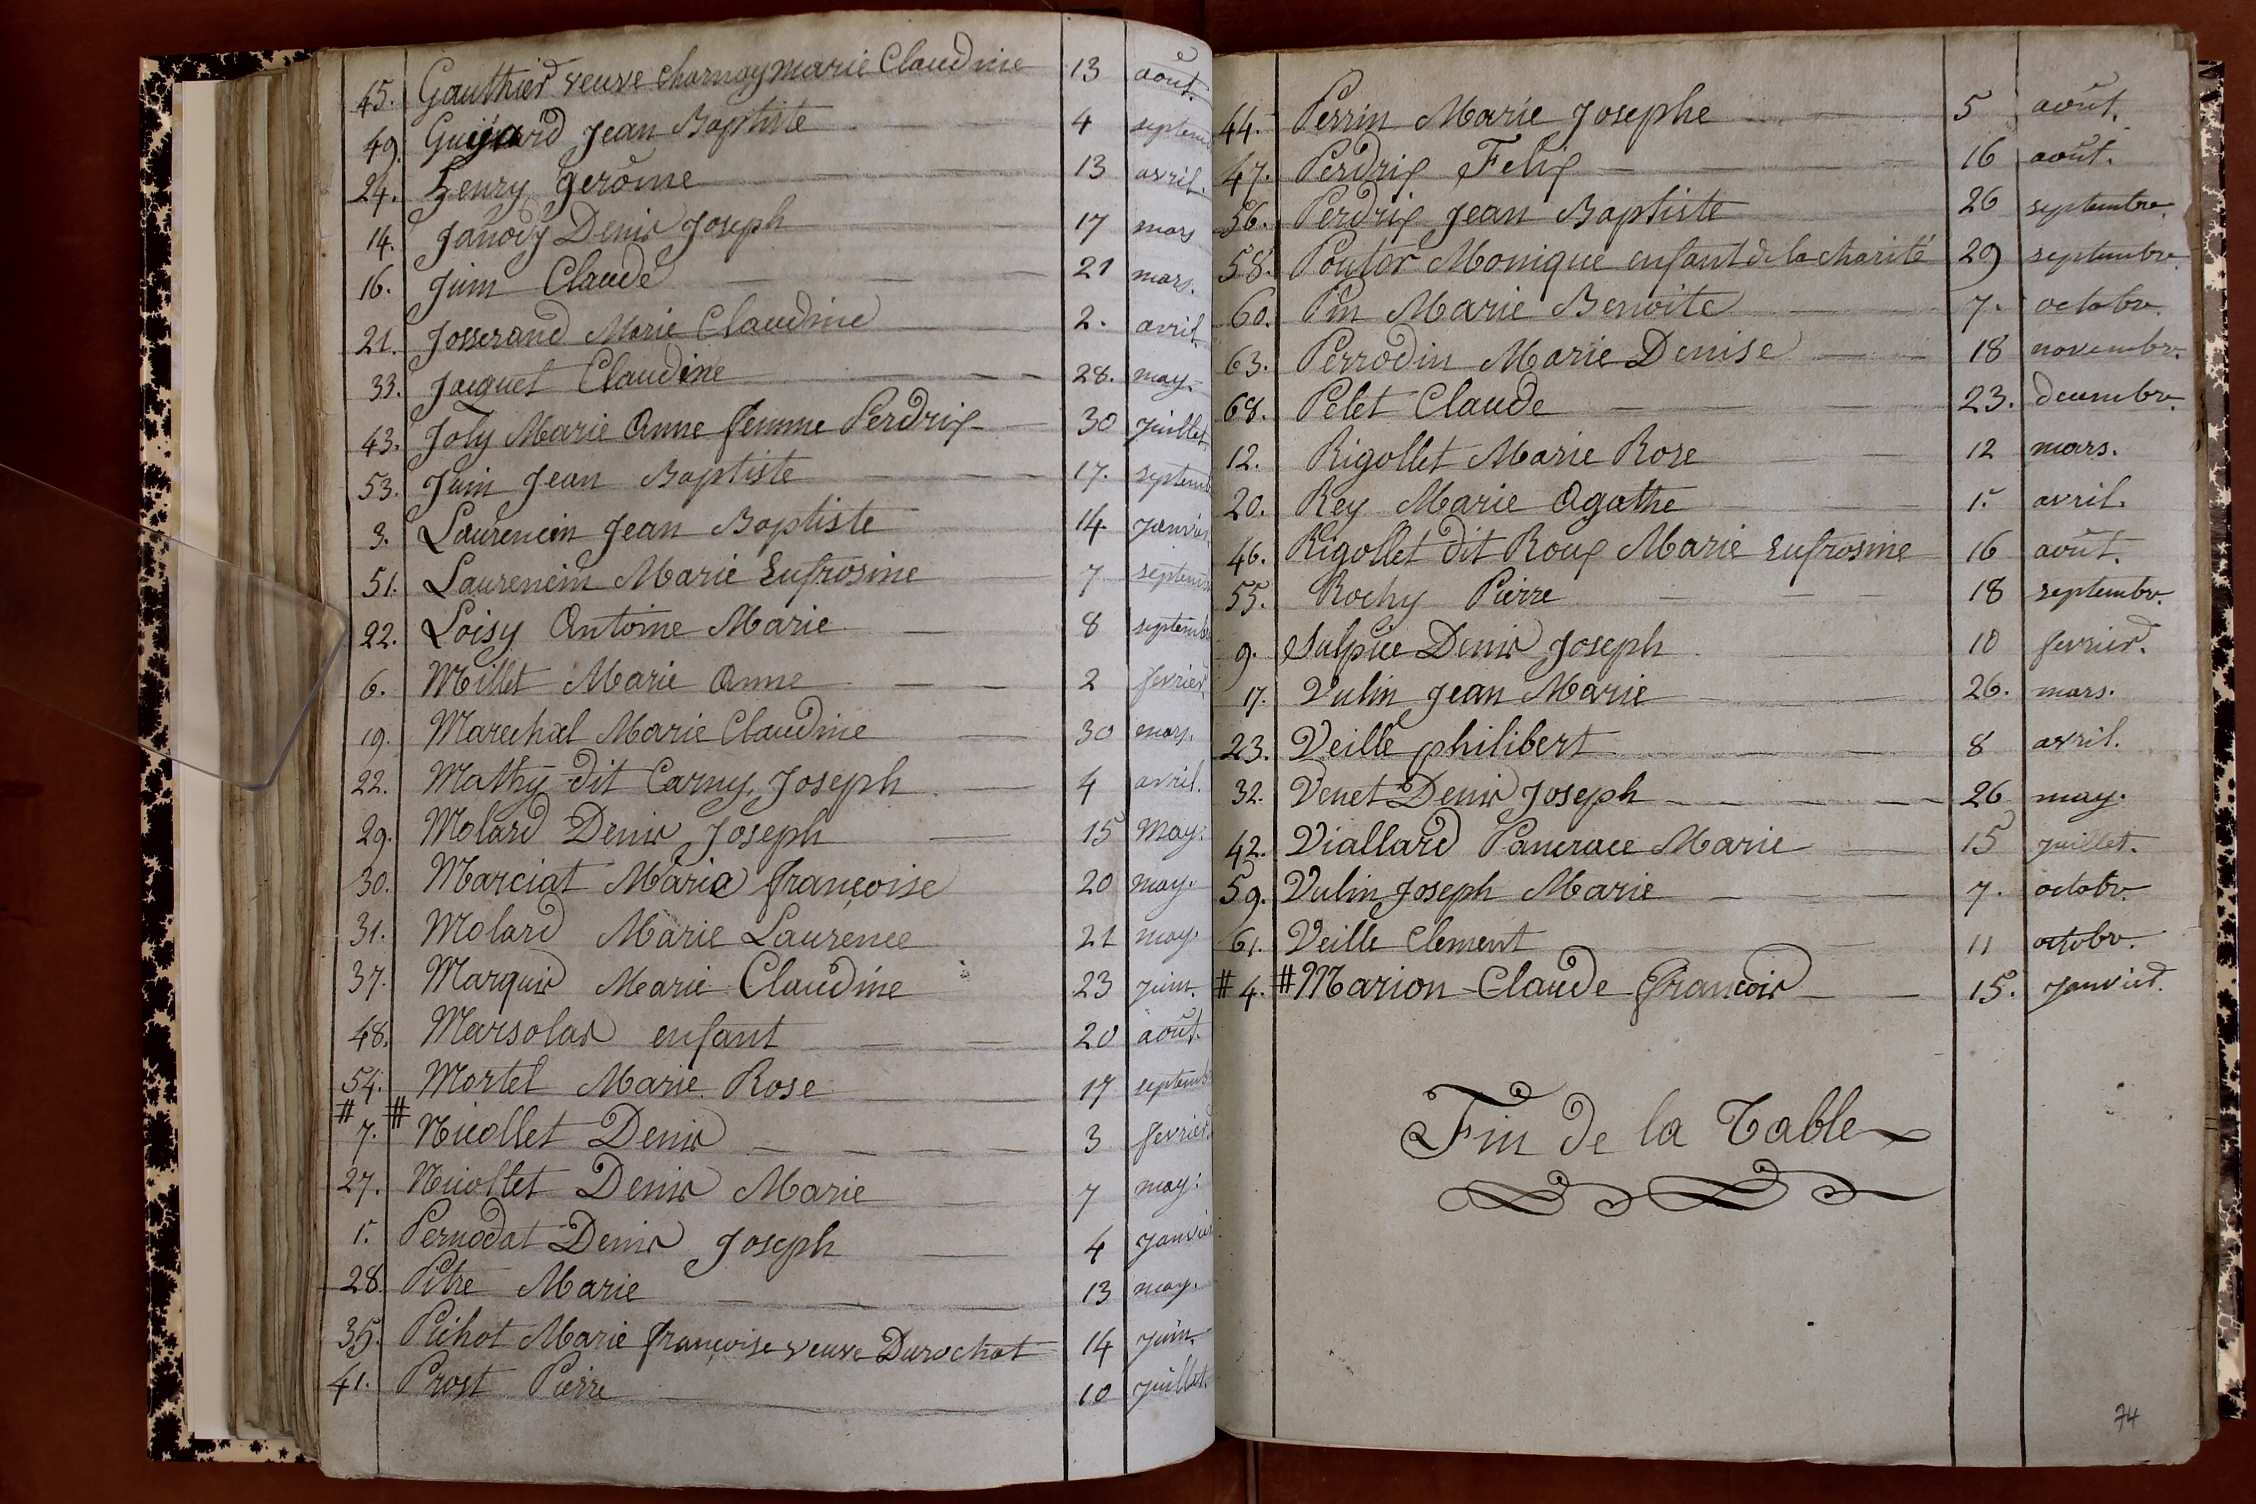 45. Gauthier veuve charnay marie Claudine 13 août.
49. Guijard Jean Baptiste 4 septem
24. henry gerôme 13 avril.
14. Janody Denis Joseph 17 mars
16. Juin Claude 21 mars.
21. Josserand Marie Claudine 2. avril
33. Jacquet Claudine 28. may.
43. Joly Marie Anne femme Perdrix 30 juillet
53. Juin Jean Baptiste 17. septemb
3. Laurencin Jean Baptiste 14. janvier
51. Laurencin Marie Eufrosine 7 septem
22. Loisy Antoine Marie 8 septemb
6. Millet Marie Anne 2 fevrier
19. Marechal Marie Claudine 30 mars.
22. Mathy dit Carny, Joseph 4 avril.
29. Molard Denis Joseph 15 May.
30. Marciat Maria françoise 20 may.
31. Molard Marie Laurence 21 may.
37. Marquis Marie Claudine 23 juin.
48. Marsolas enfant 20 août.
54. Mortel Marie Rose 17 septemb
# 7. # Nicollet Denis 3 fevrier
27. Nicollet Denis Marie 7 may:
1. Pernodat Denis Joseph 4 janvier
28. Pitre Marie 13 may.
35. Pichot Marie françoise veuve Durochat 14 juin.
41. Prost Pierre 10 juillet.
44. Perrin Marie Josephe 5 août.
47. Perdrix Felix 16 août.
56. Perdrix Jean Baptiste 26 septembre.
58. Poutor Monique enfant de la charité 29 septembre.
60. Pin Marie Benoite 7. octobr.
63. Perrodin Marie Denise 18 novembr.
68. Pelet Claude 23. decembr.
12. Rigollet Marie Rose 12 mars.
20. Rey Marie Agathe 1. avril.
46. Rigollet dit Roux Marie Eufrosine 16 août.
55. Rochy Pierre 18 septembr.
9. Sulpice Denis Joseph 10 fevrier.
17. Vulin Jean Marie 26. mars.
23. Veille philibert 8 avril.
32. Venet Denis Joseph 26 may.
42. Viallard Pancrace Marie 15 juillet.
59. Vulin Joseph Marie 7. octobr.
61. Veille Clement 11 octobr.
# 4. # Marion Claude François 15. janvier.
Fin de la Table
74